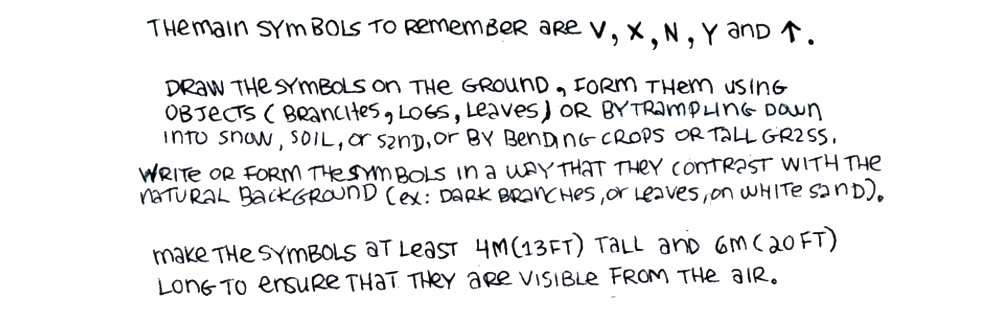 THE main SYMBOLS TO REMEMBER ARE V, X, N, Y AND ↑.
DRAW THE SYMBOLS ON THE GROUND, FORM THEM USING
OBJECTS (BRANCHES, LOGS, LEAVES) OR BY TRAMPLING DOWN
INTO SNOW, SOIL, OR SAND, OR BY BENDING CROPS OR TALL GRASS.
WRITE OR FORM THE SYMBOLS IN A WAY THAT THEY CONTRAST WITH THE
NATURAL BACKGROUND (EX: DARK BRANCHES, OR LEAVES, ON WHITE SAND).
MAKE THE SYMBOLS AT LEAST 4M (13FT) TALL AND 6M (20FT)
LONG TO ENSURE THAT THEY ARE VISIBLE FROM THE AIR.